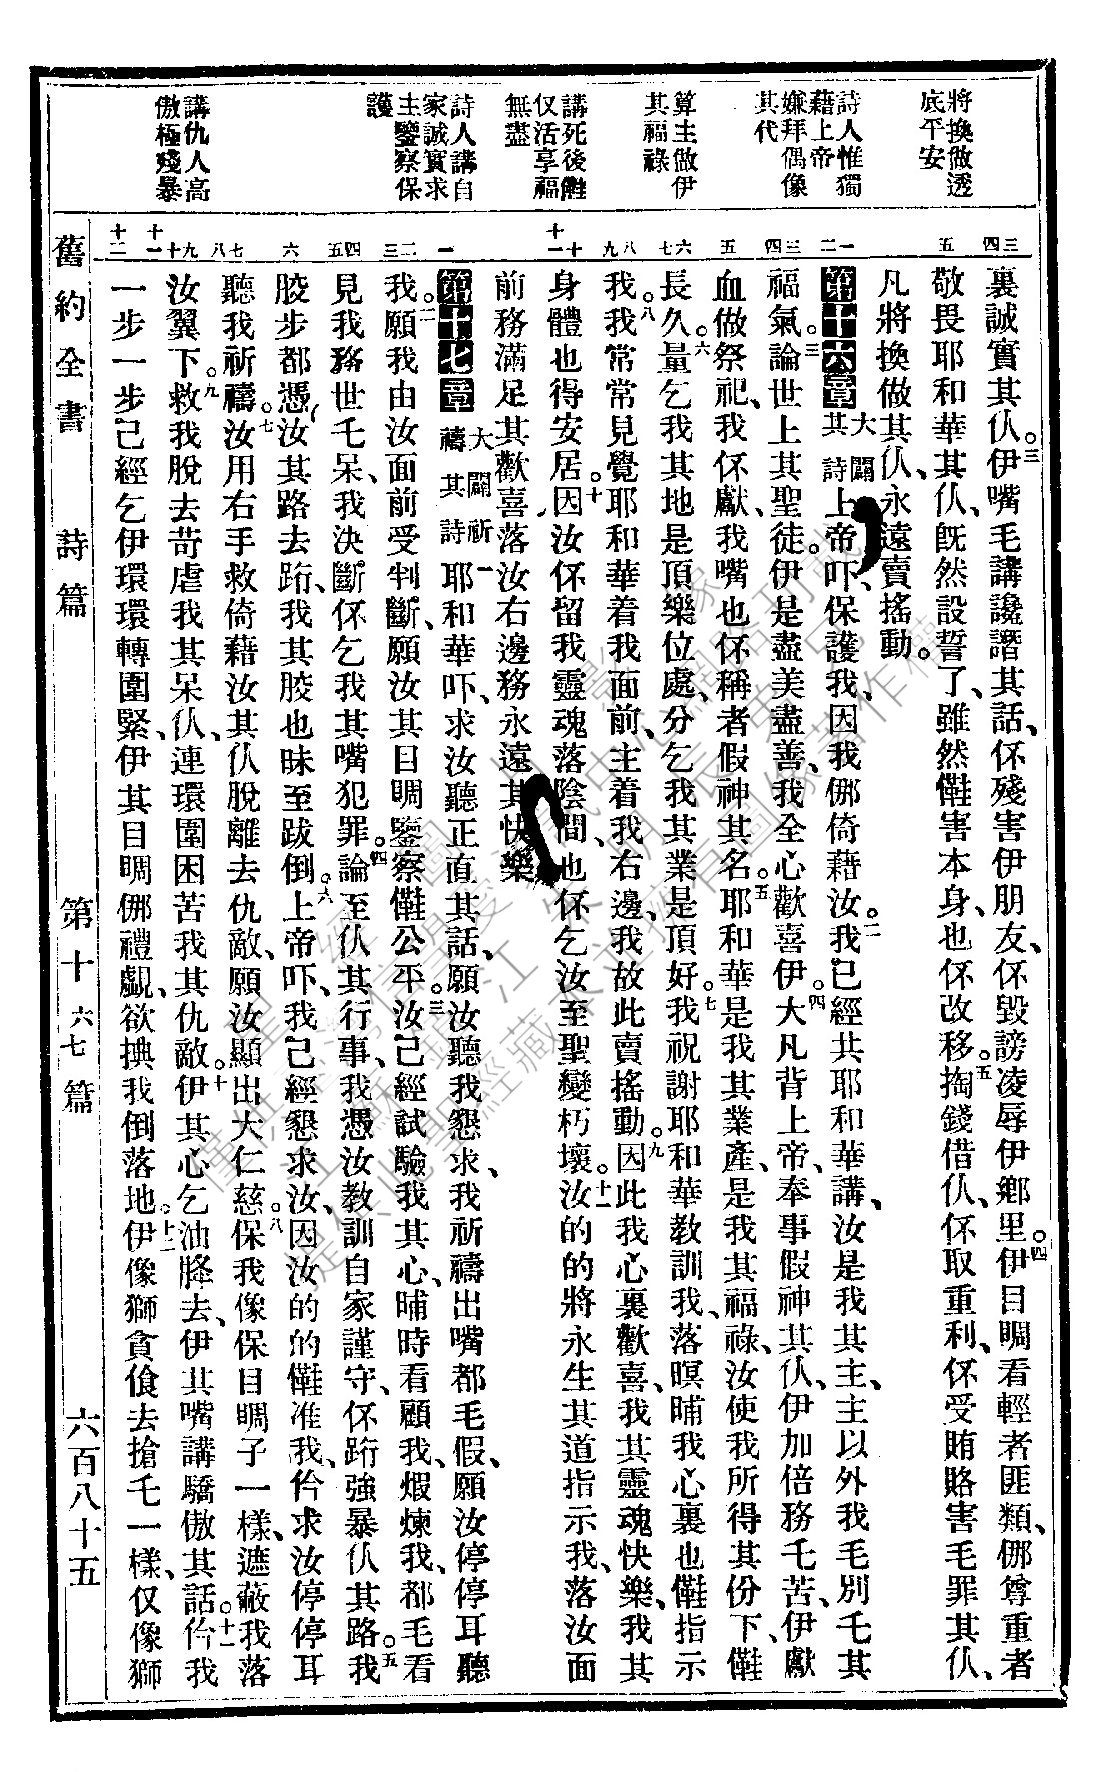 將換做透
底平安
詩人惟獨
藉上帝
嫌拜偶像
其代
算主做伊
其福祿
講死後㑚
仅活享福
無盡
詩人講自
家誠實求
主鑒察保
護
講仇人高
傲極殘暴
三
四
五
一
二
三
四
五
六
七
八
九
十
十一
一
二
三
四
五
六
七
八
九
十
十一
十二
裏誠實其仈。三伊嘴毛講讒譖其話、伓殘害伊朋友、伓毀謗凌辱伊鄉里。四伊目睭看輕者匪類、㑚尊重者
敬畏耶和華其仈、旣然設誓了、雖然㒕害本身、也伓改移。五掏錢借仈、伓取重利、伓受賄賂害毛罪其仈、
凡將換做其仈、永遠賣搖動。
第十六章 大闢其詩 上帝吓、保護我、因我㑚倚藉汝。二我已經共耶和華講、汝是我其主、主以外我毛別乇其
福氣。三論世上其聖徒。伊是盡美盡善、我全心歡喜伊。四大凡背上帝、奉事假神其仈、伊加倍務乇苦、伊獻
血做祭祀、我伓獻、我嘴也伓稱者假神其名。五耶和華是我其業產、是我其福祿、汝使我所得其份下、㒕
長久。六量乞我其地是頂樂位處、分乞我其業是頂好。七我祝謝耶和華教訓我、落暝晡我心裏也㒕指示
我。八我常常見覺耶和華着我面前、主着我右邊、我故此賣搖動。九因此我心裏歡喜、我其靈魂快樂、我其
身體也得安居。十因汝伓留我靈魂落陰間、也伓乞汝至聖變朽壞。十一汝的的將永生其道指示我、落汝面
前務滿足其歡喜、落汝右邊務永遠其快樂
第十七章 大闢祈禱其詩 一耶和華吓、求汝聽正直其話、願汝聽我懇求、我祈禱出嘴都毛假、願汝停停耳聽
我。二願我由汝面前受判斷、願汝其目睭鑒察㒕公平。三汝已經試驗我其心、晡時看顧我、煆煉我、都毛看
見我務世乇呆、我決斷伓乞我其嘴犯罪。四論至仈其行事、我憑汝教訓自家謹守、伓跨強暴仈其路。五我
骹步都憑汝其路去跨、我其骹也昧至跋倒。六上帝吓、我已經懇求汝、因汝的的㒕准我、仱求汝停停耳
聽我祈禱。七汝用右手救倚藉汝其仈脫離去仇敵、願汝顯出大仁慈。八保我像保目睭子一樣、遮蔽我落
汝翼下。九救我脫去苛虐我其呆仈、連環圍困苦我其仇敵。十伊其心乞油降去、伊其嘴講驕傲其話。十一仱我
一步一步已經乞伊環環轉圍緊、伊其目睭㑚禮覷、欲捵我倒落地。十二伊像獅貪飡去搶乇一樣、仅像獅
舊約全書 詩篇 第十六七篇 六百八十五